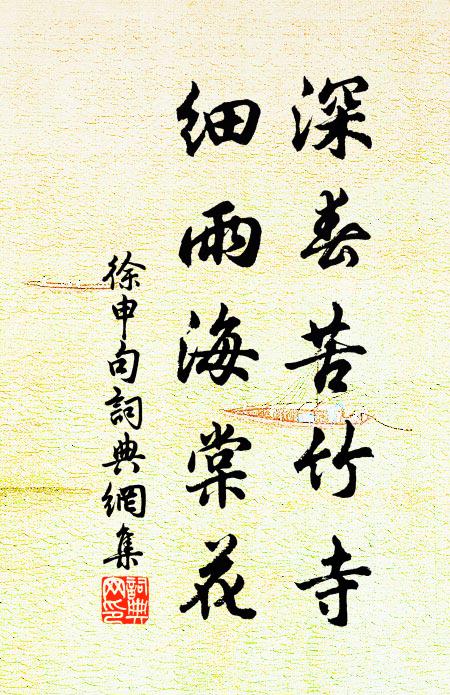 深春苦竹寺
細雨海棠花
徐申句詞典網集
詞典
网印